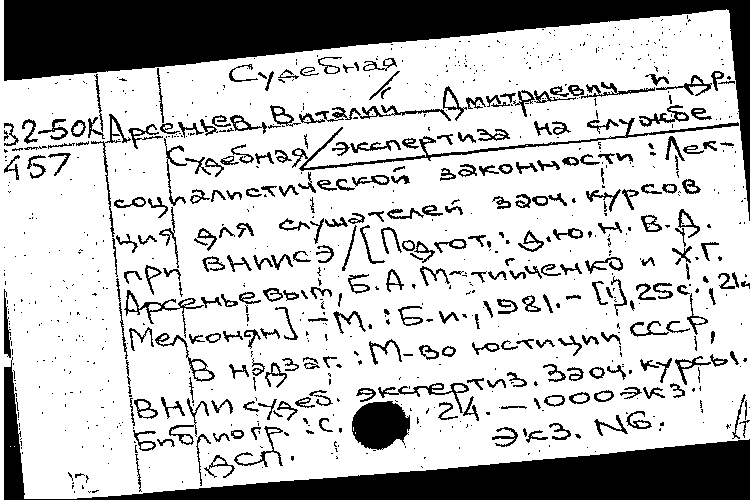 Судебная
82-50К Арсеньев, Виталий Дмитриевич и др.
457 Судебная / экспертиза на службе
социалистической законности : Лек-
ция для слушателей заоч. курсов
при ВНИИСЭ / [Подгот. : д.ю.н. В.Д.
Арсеньевым, Б.А. М-тийченко и Х.Г.
Мелконян]. - М. : Б.и., 1981. - [1], 25 с. ; 21
В надзаг. : М-во юстиции СССР,
ВНИИ судеб. экспертиз. Заоч. курсы.
Библиогр. : с. 24. - 1000 экз.
ДСП. Экз. N6.